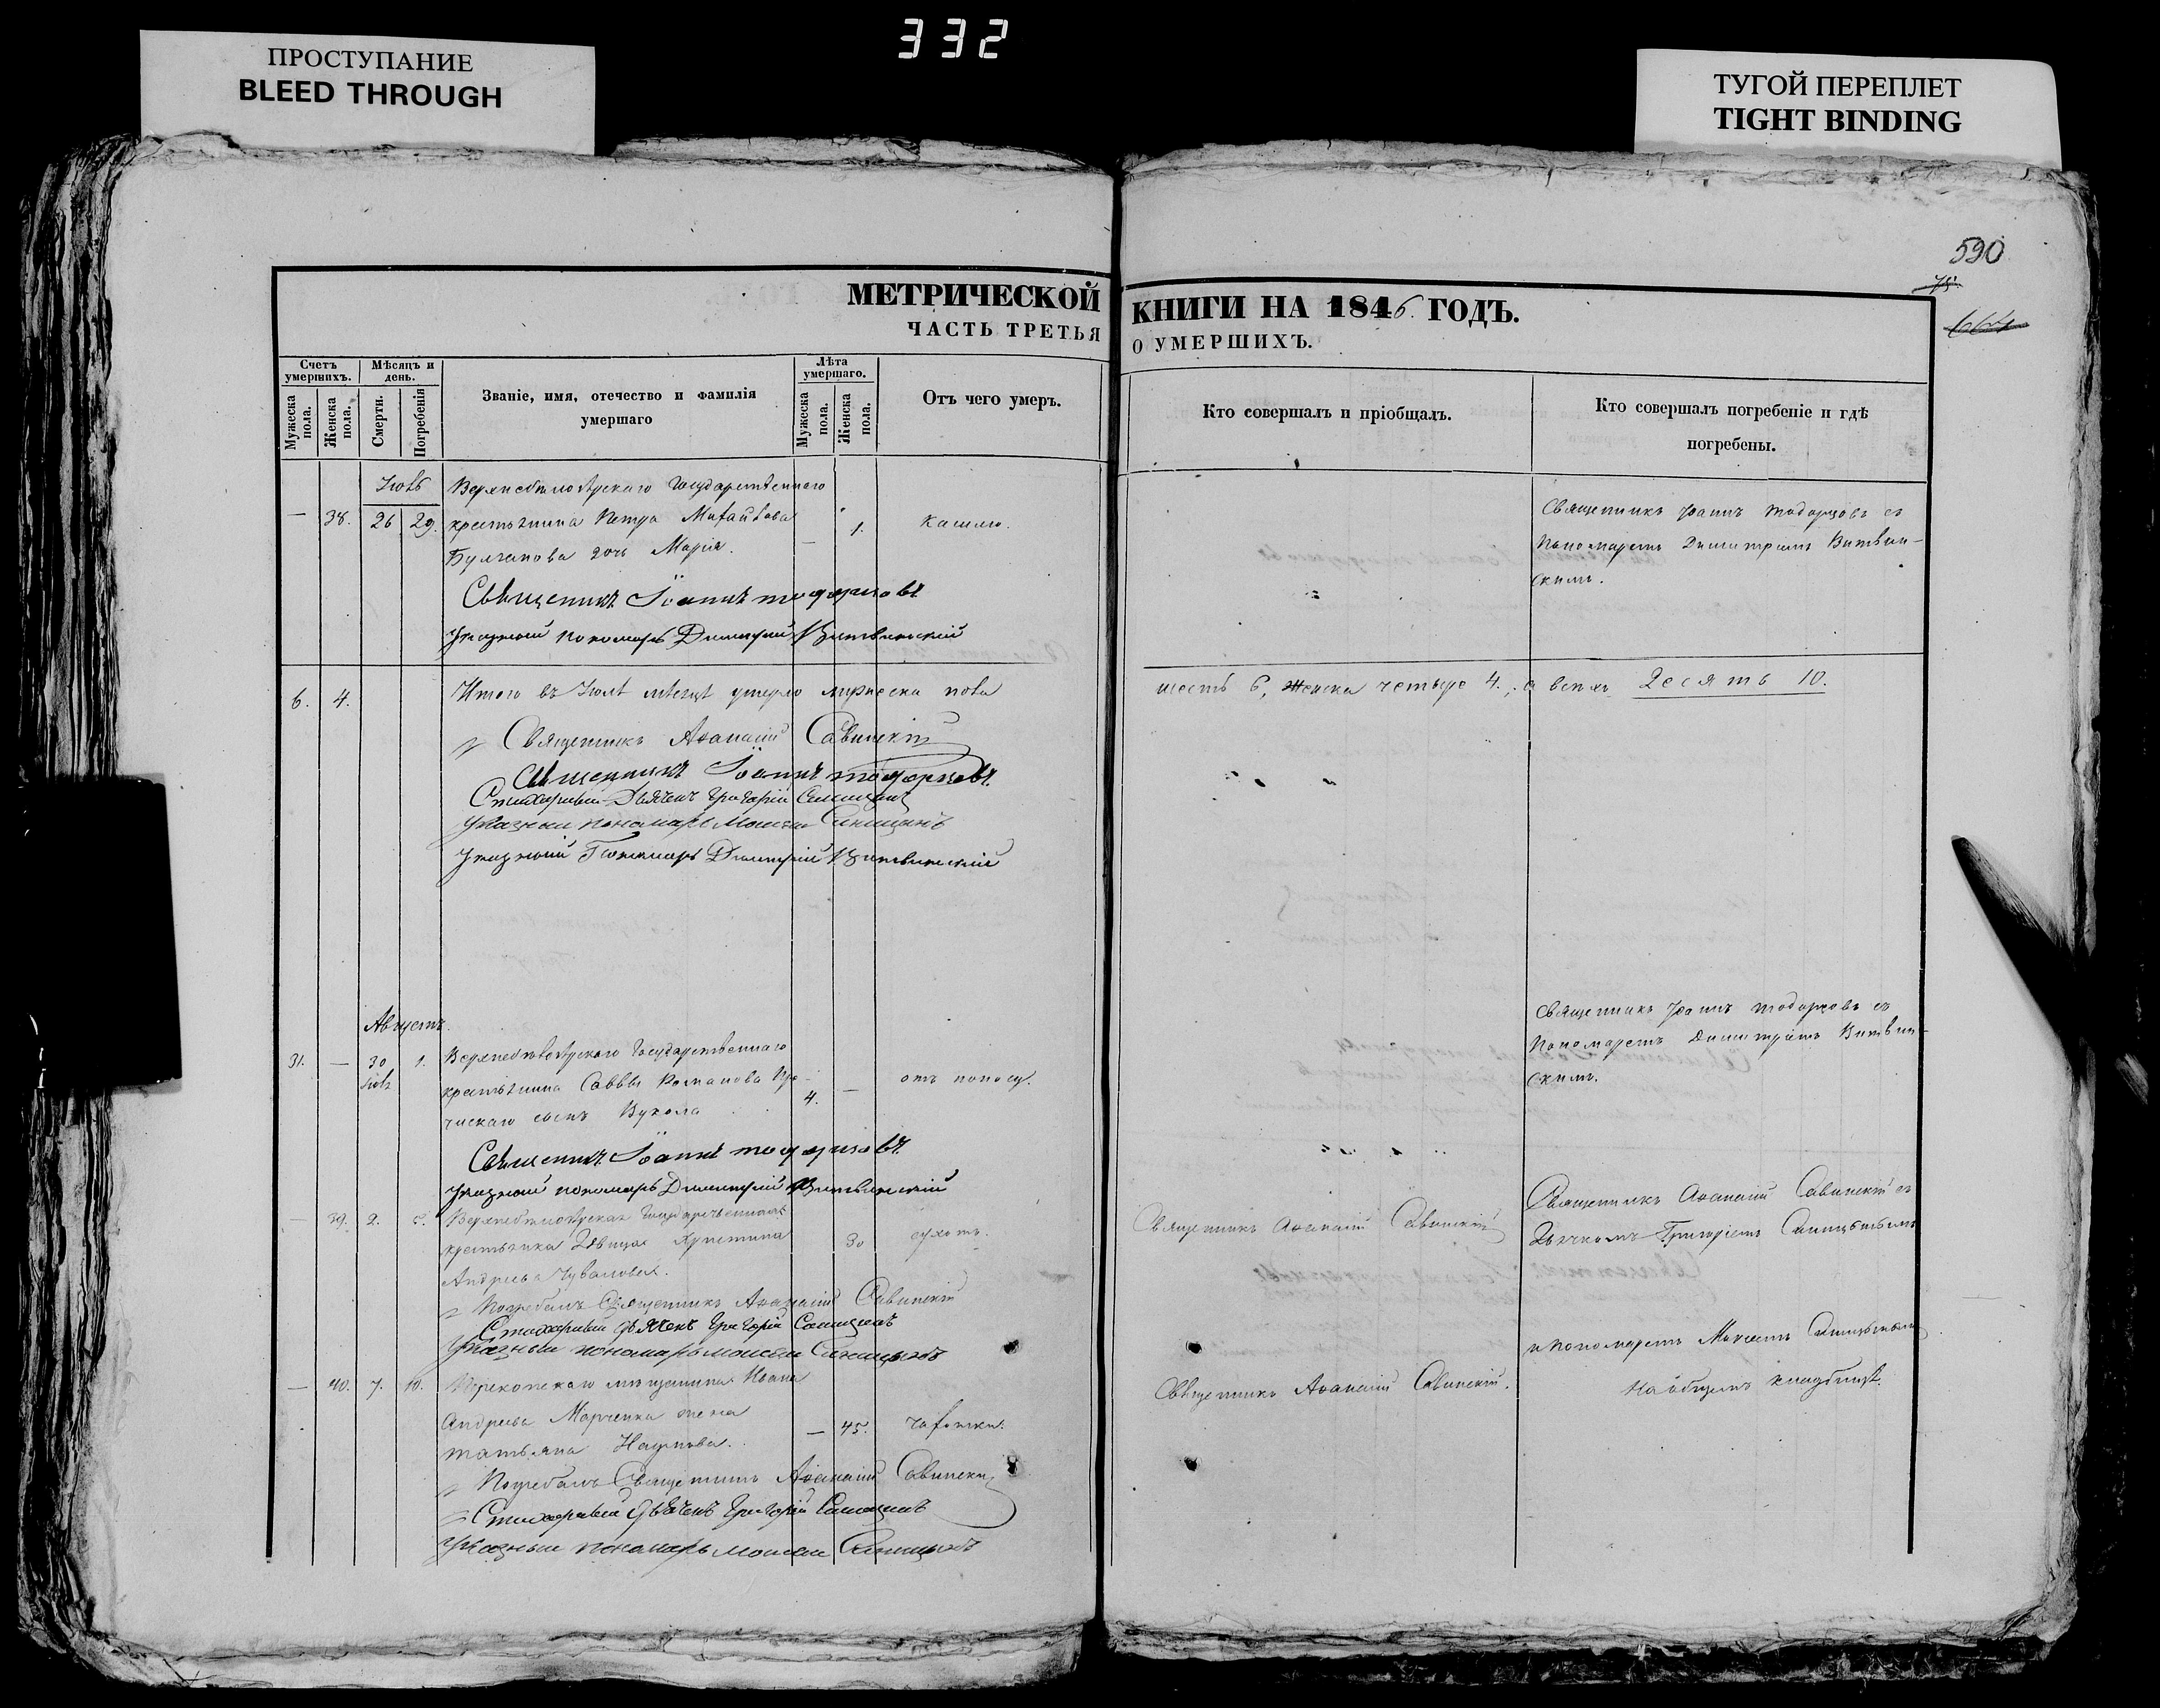 332
ПРОСТУПАНИЕ
BLEED THROUGH
ТУГОЙ ПЕРЕПЛЕТ
TIGHT BINDING
590
МЕТРИЧЕСКОЙ КНИГИ НА 1846 ГОДЪ.
ЧАСТЬ ТРЕТЬЯ О УМЕРШИХЪ.
Счетъ умершихъ.
Мужеска пола.
Женска пола.
Мѣсяцъ и день.
Смерти.
Погребенія
Званіе, имя, отечество и фамилія умершаго
Лѣта умершаго.
Мужеска пола.
Женска пола.
Отъ чего умеръ.
Кто совершалъ и пріобщалъ.
Кто совершалъ погребеніе и гдѣ погребены.
Государственнаго
— 38. 26 29. крестьянина Петра Михайлова — 1. кашлю.
дочь Марія.
Священникъ Іоаннъ Тодорцовъ съ
Пономаремъ Димитріемъ Витвин-
скимъ.
Священникъ Іоаннъ Тодорцовъ
Указный пономарь Димитрій Витвинскій
6. 4. Итого въ Іюлѣ мѣсяцѣ умерло мужеска пола шесть 6, женска четыре 4., а всѣхъ десять 10.
Священникъ Аѳанасій Савинскій
Священникъ Іоаннъ Тодорцовъ
Стихарный Дьячекъ Григорій Синицынъ
Указный пономарь Моисей Синицынъ
Указный Пономарь Димитрій Витвинскій
Августъ.
31. — 30 1. Государственнаго
крестьянина Саввы Романова 4. — отъ поносу.
сынъ Вукола
Священникъ Іоаннъ Тодорцовъ съ
Пономаремъ Димитріемъ Витвин-
скимъ.
Священникъ Іоаннъ Тодорцовъ
Указный пономарь Димитрій Витвинскій
— 39. 2. Государственная
крестьянка дѣвица Христина 30
Андреева
Священникъ Аѳанасій Савинскій
Священникъ Аѳанасій Савинскій съ
Дьячкомъ Григоріемъ Синицынымъ
Погребалъ Священникъ Аѳанасій Савинскій
Стихарный Дьячекъ Григорій Синицынъ
Указный пономарь Моисей Синицынъ
и Пономаремъ Синицынымъ
— 40. 7. 10. мѣщанина Ивана
Андреева Марченка жена — 45. чахотки.
Татьяна Наумова.
Священникъ Аѳанасій Савинскій.
На общемъ кладбищѣ.
Погребалъ Священникъ Аѳанасій Савинскій
Стихарный Дьячекъ Григорій Синицынъ
Указный пономарь Моисей Синицынъ